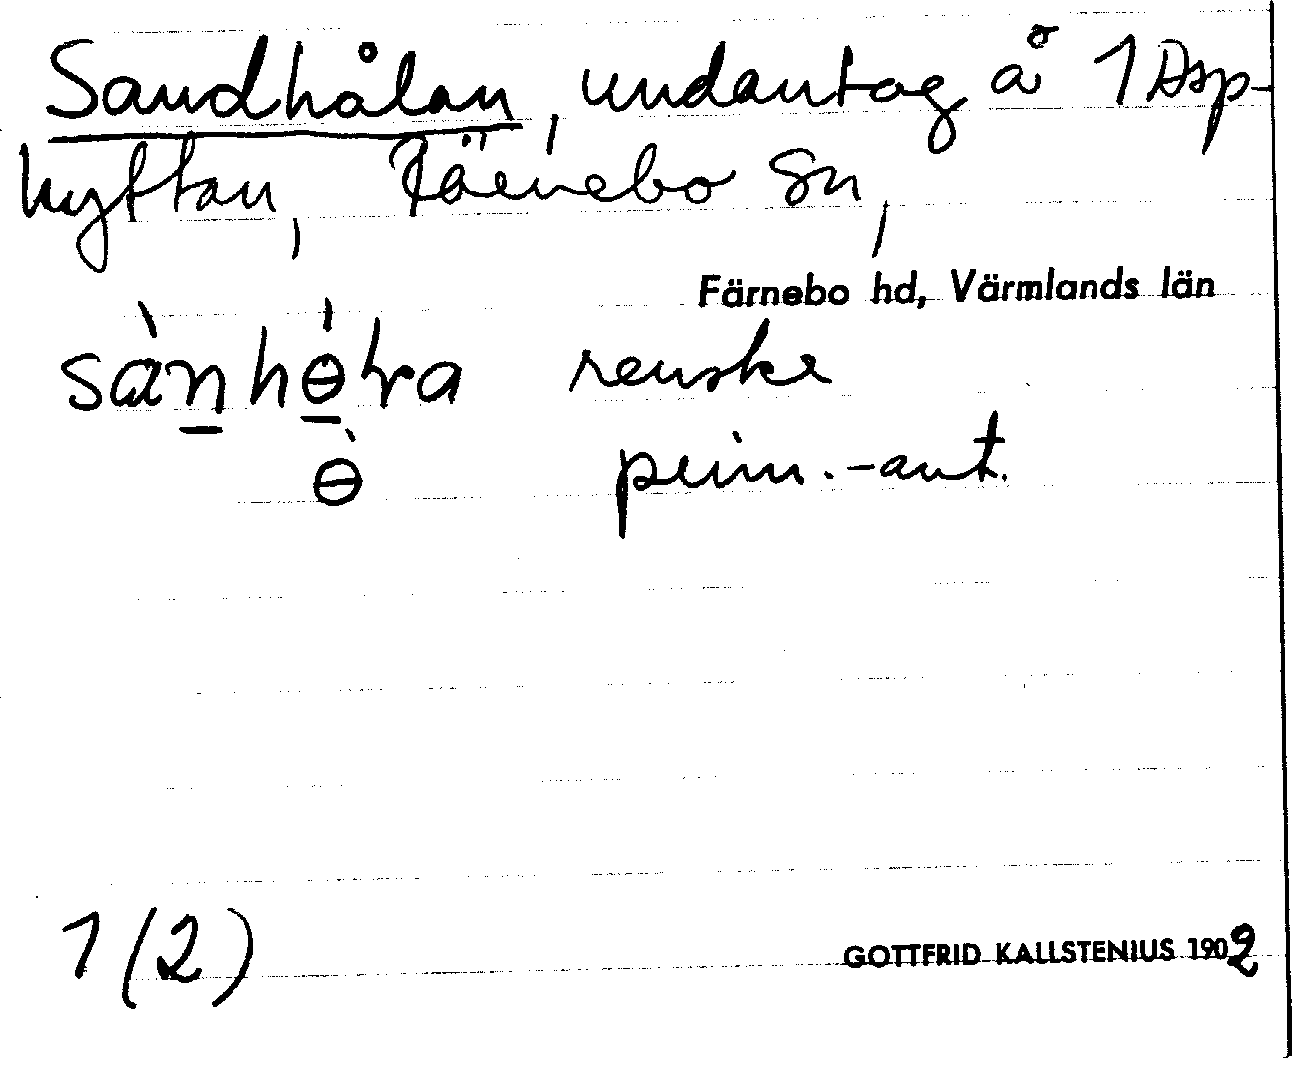 Sandhålan, undantag å 1 Asp-
hyttan, Färnebo sn,
Färnebo hd, Värmlands län
sàn̠hɵ̠́lra renske
ɵ̀ prim.-ant.
1 (2)
GOTTFRID KALLSTENIUS 1902